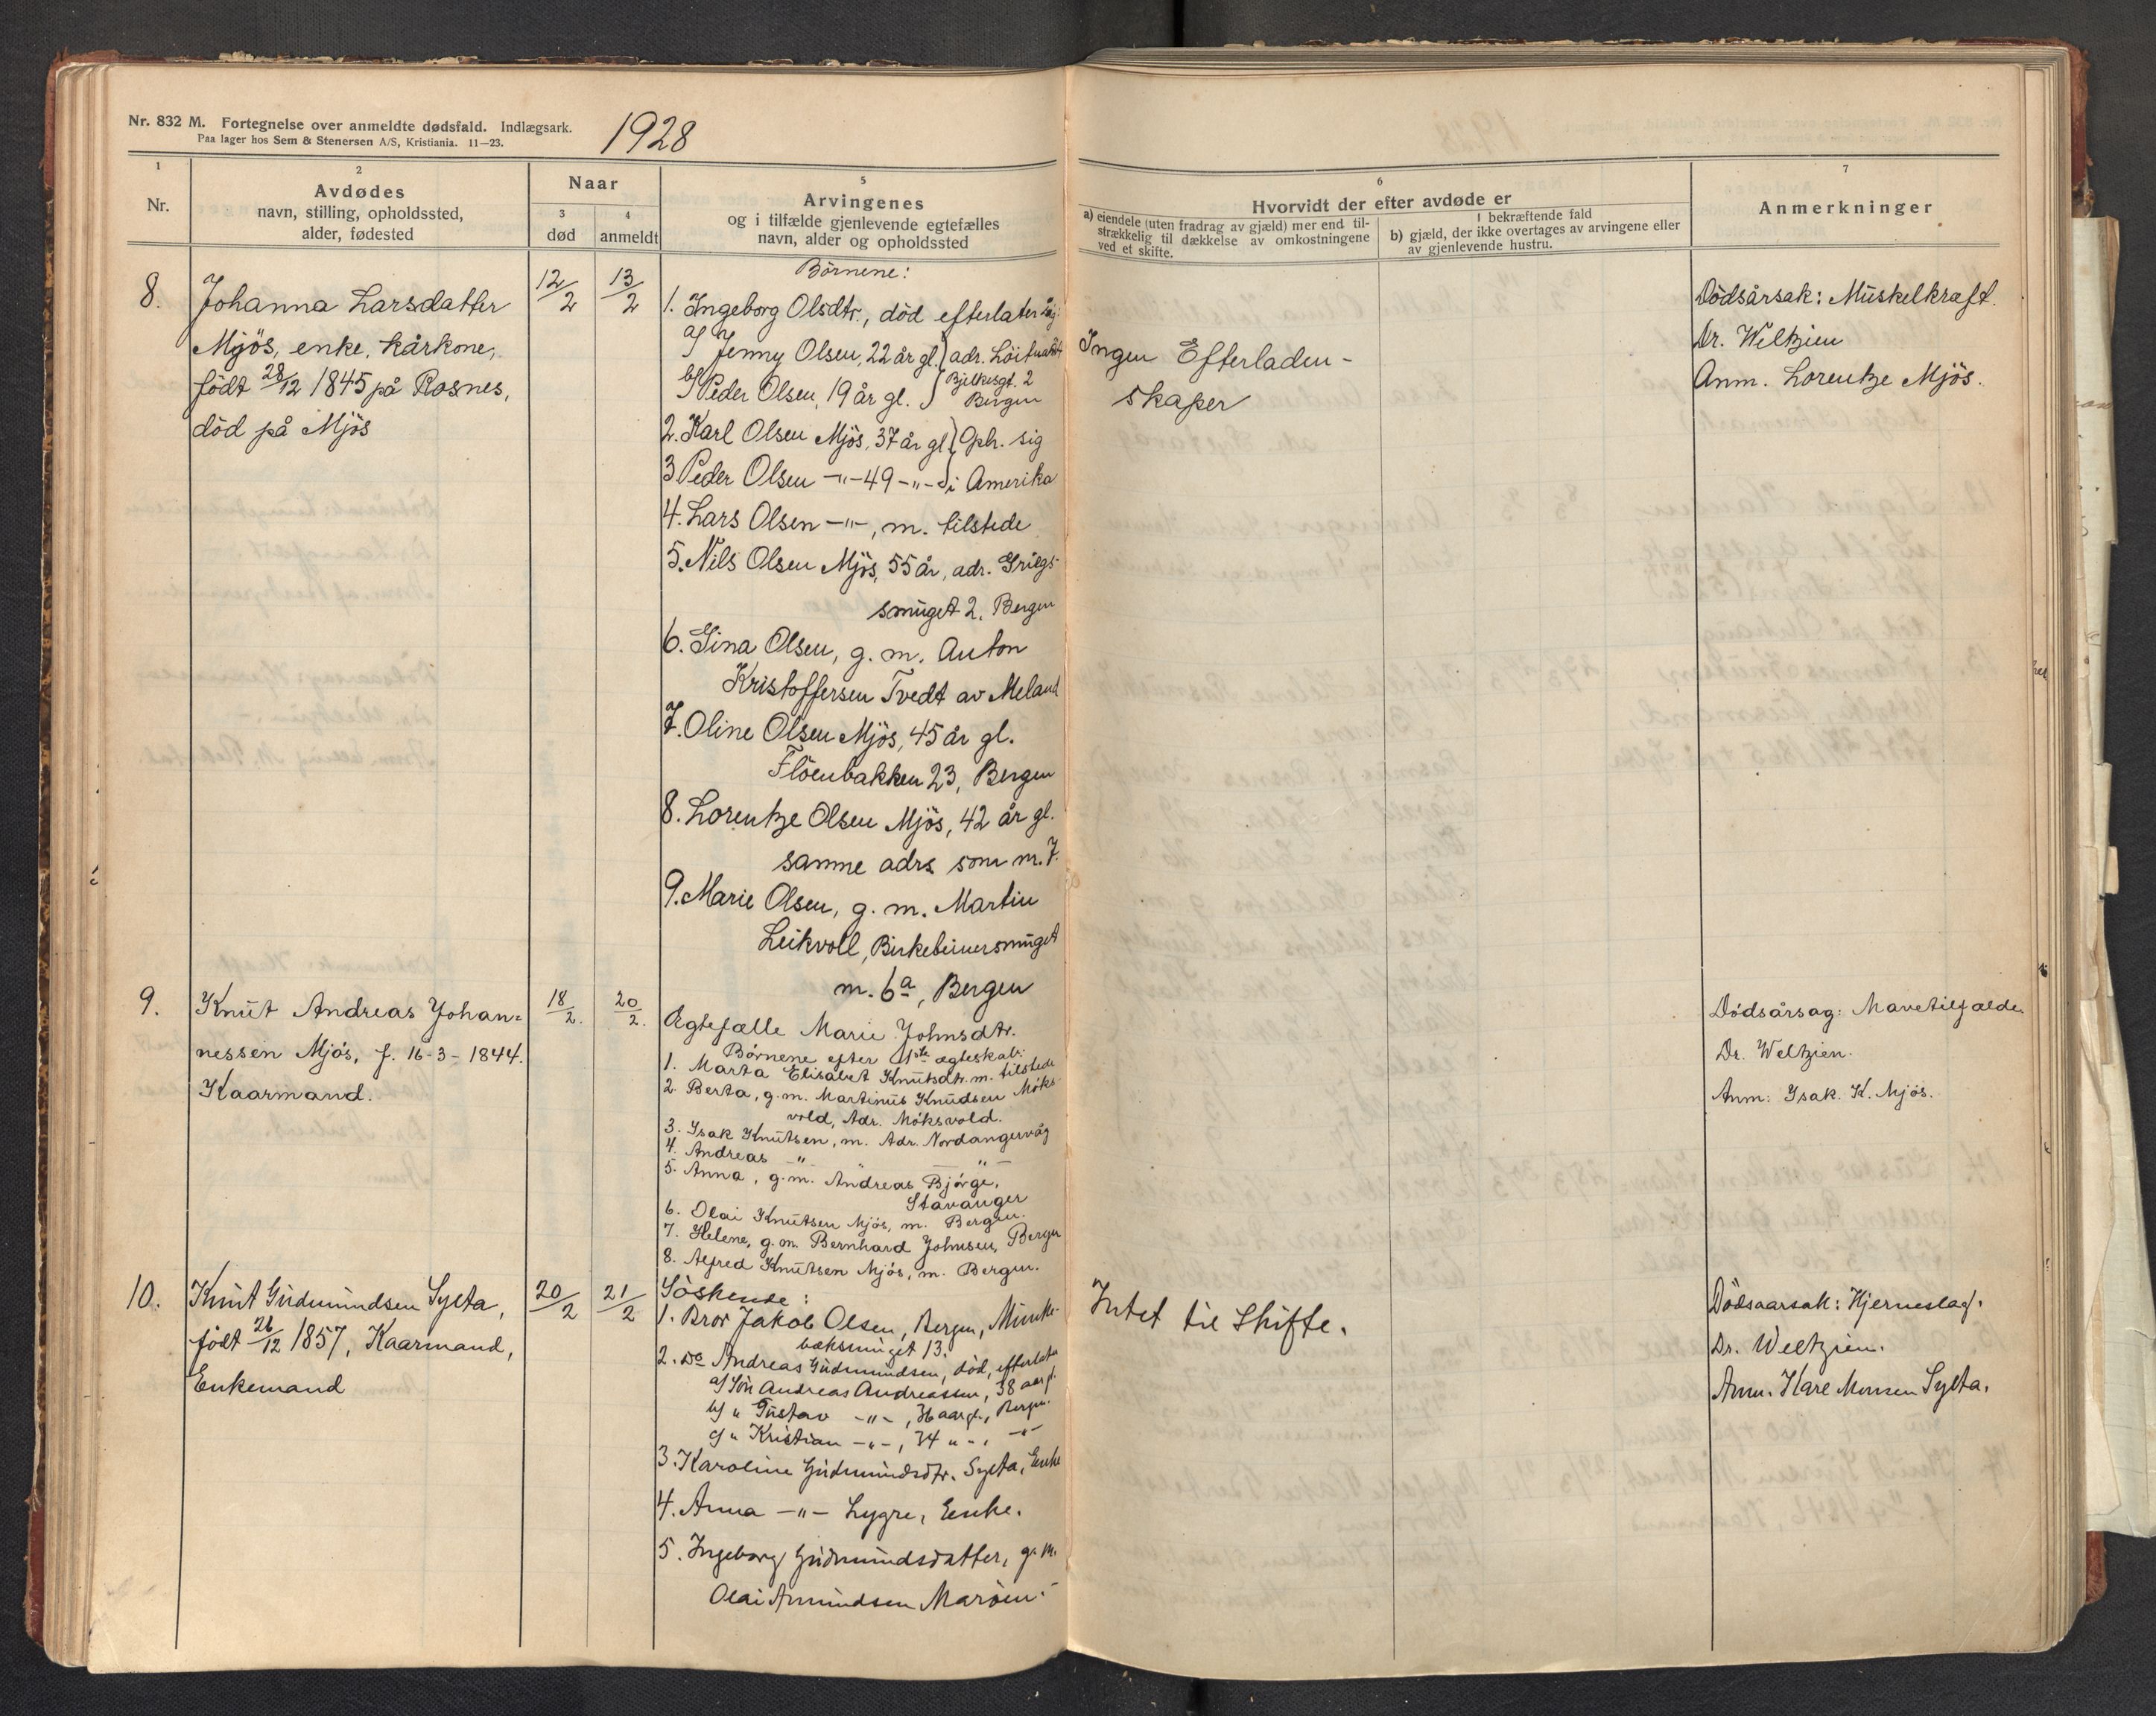 Nr. 832 M. Fortegnelse over anmeldte dødsfald. Indlægsark.
Paa lager hos Sem & Stenersen A/S, Kristiania. 11—23.
1928
1
Nr.
2
Avdødes
navn, stilling, opholdssted,
alder, fødested
Naar
3
død
4
anmeldt
5
Arvingenes
og i tilfælde gjenlevende egtefælles
navn, alder og opholdssted
6
Hvorvidt der efter avdøde er
a) eiendele (uten fradrag av gjæld) mer end til-
strækkelig til dækkelse av omkostningene
ved et skifte.
I bekræftende fald
b) gjæld, der ikke overtages av arvingene eller
av gjenlevende hustru.
7
Anmerkninger
8.
Johanna Larsdatter
Mjös, enke, kårkone,
født 28/12 1845 på Rosnes,
død på Mjös
12/2
13/2
Börnene:
1. Ingeborg Olsdtr., död efterlater sig:
a) Jenny Olsen, 22 år gl. } adr. Löitnant
b) Peder Olsen, 19 år gl. } Bjelkesgt. 2
Bergen
2. Karl Olsen Mjös, 37 år gl } Oph. sig
3 Peder Olsen -"- 49 -"- } i Amerika
4. Lars Olsen -"-, m. tilstede
5. Nils Olsen Mjös, 55 år, adr. Griegs-
smuget 2, Bergen
6. Gina Olsen, g. m. Anton
Kristoffersen Tvedt av Meland
7. Oline Olsen Mjös, 45 år gl.
Flöenbakken 23, Bergen
8. Lorentze Olsen Mjös, 42 år gl.
samme adrs som nr. 7.
9. Marie Olsen, g. m. Martin
Leikvoll, Birkebeinersmuget
nr. 6a, Bergen
Ingen Efterladen-
skaper
Dödsårsak: Muskelkræft.
Dr. Weltzien
Anm. Lorentze Mjös.
9.
Knut Andreas Johan-
nessen Mjós, f. 16-3-1844.
Kaarmand.
18/2.
20/2.
Ægtefælle Marie Johnsdtr.
Börnene efter 1ste ægteskab:
1. Marta Elisabet Knutsdtr. m. tilstede
2. Berta, g.m. Martinus Knudsen Móks-
vold, Adr. Móksvold.
3. Isak Knutsen, m. Adr. Nordangervåg
4. Andreas -"- -"-
5. Anna, g.m. Andreas Bjórge,
Stavanger
6. Olai Knutsen Mjós, m. Bergen.
7. Helene, g.m. Bernhard Johnsen, Bergen
8. Alfred Knutsen Mjós, m. Bergen.
Dódsårsag: Mavetilfælde.
Dr. Weltzien.
Anm: Isak. K. Mjós.
10.
Knut Gudmundsen Sylta,
født 26/12 1857, Kaarmand,
Enkemand
20/2
21/2
Söskende:
1. Bror Jakob Olsen, Bergen, Munke-
bæksmuget 13.
2. Do Andreas Gudmundsen, död, efterlata
a) Sön Andreas Andreassen, 38 aar gl.
b) " Gustav -"-, 36 aar gl., Bergen.
c) " Kristian -"-, 34 " -, -"-
3. Karoline Gudmundsdtr. Sylta, Enke
4. Anna -"- Lygre, Enke.
5. Ingeborg Gudmundsdatter, g. m.
Olai Amundsen Maröen.
Intet til Skifte.
Dödsaarsak: Hjerneslag.
Dr. Weltzien.
Anm. Kare Monsen Sylta.